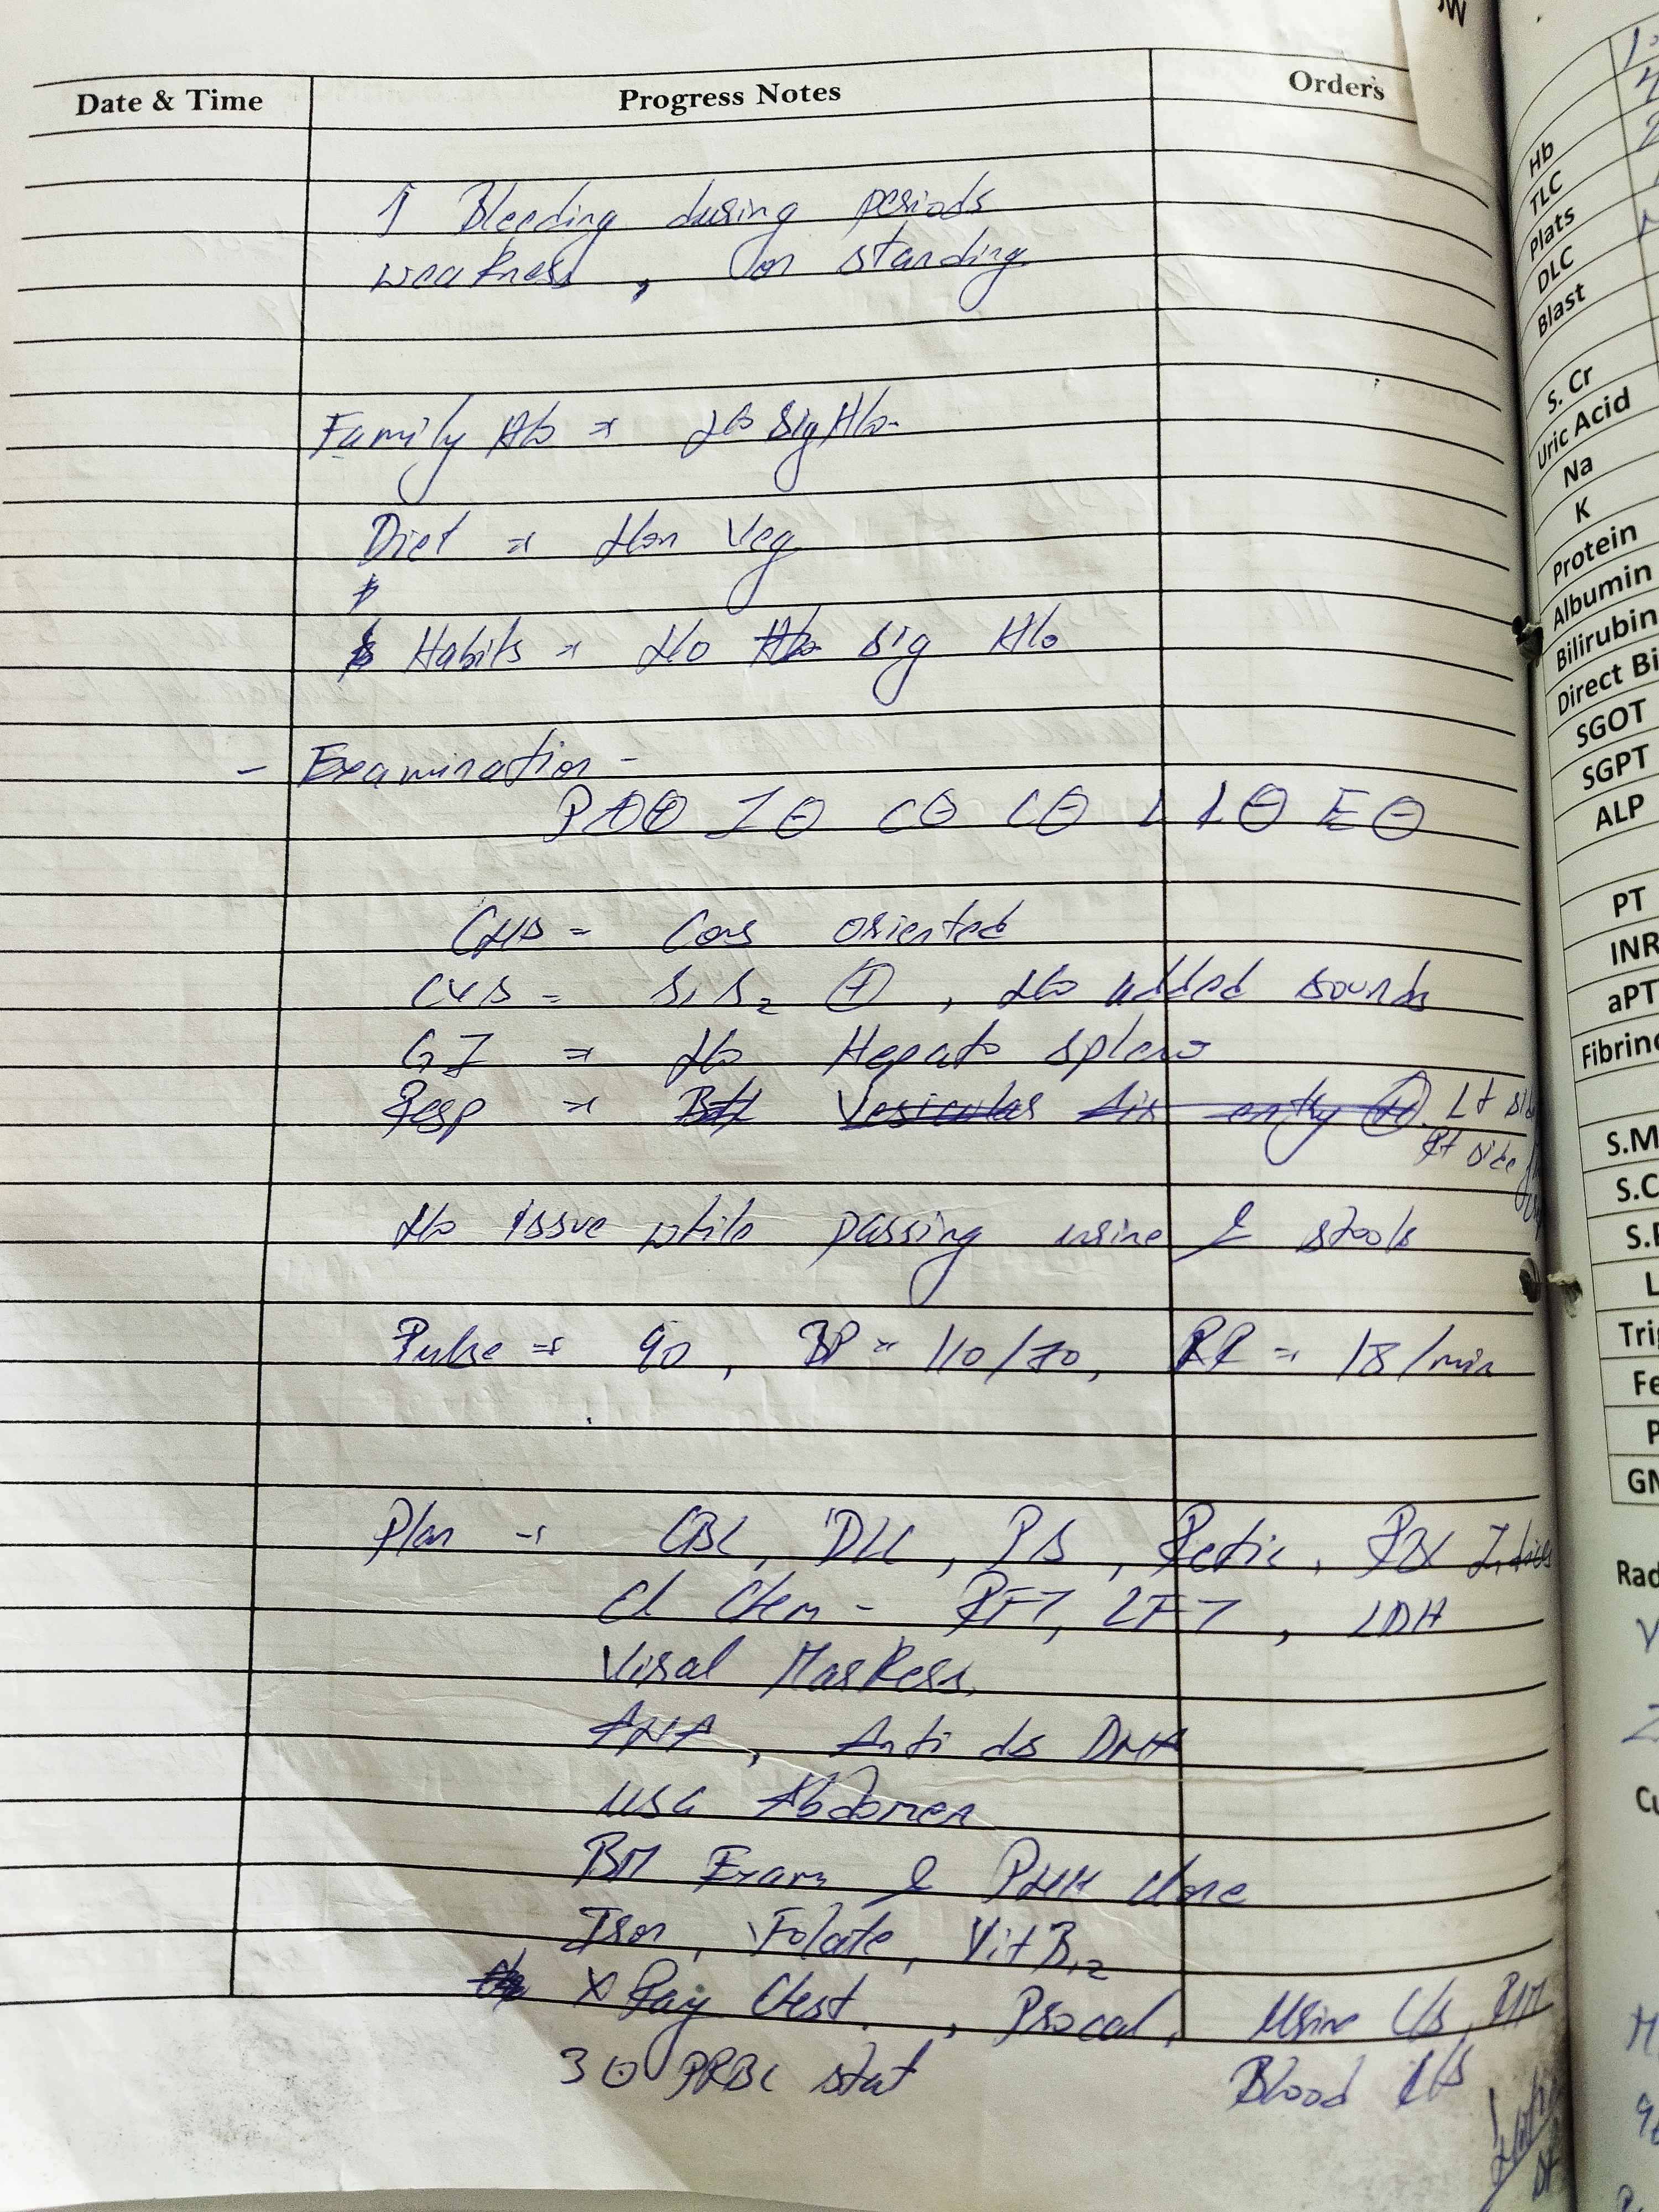 Date & Time Progress Notes Orders
↑ Bleeding during periods
weakness, on standing
Family H/o → No sig H/o
Diet → Non Veg
Habits → No H/o sig H/o
- Examination -
P ⊕⊕ I ⊖ C ⊖ C ⊖ L ⊖ E ⊖
CNS = Cons oriented
CVS = S1 S2 ⊕, No added sounds
GI → No Hepato spleno
Resp → B/L Vesicular Air entry ⊕ Lt side
Rt side
No issue while passing urine & stools
Pulse → 90, BP → 110/70, RR → 18/min
Plan → CBC, DLC, PS, Retic, RBC Indices
Cl Chem - RFT, LFT, LDH
Viral Markers,
ANA, Anti ds DNA
USG Abdomen
BM Exam & PNH clone
Iron, Folate, Vit B12
X Ray Chest, Procal, Urine C/S, R/M
3 U PRBC stat Blood C/S
Hb
TLC
Plats
DLC
Blast
S. Cr
Uric Acid
Na
K
Protein
Albumin
Bilirubin
Direct Bi
SGOT
SGPT
ALP
PT
INR
aPT
Fibrino
S.M
S.C
Trig
Fe
GN
Rad